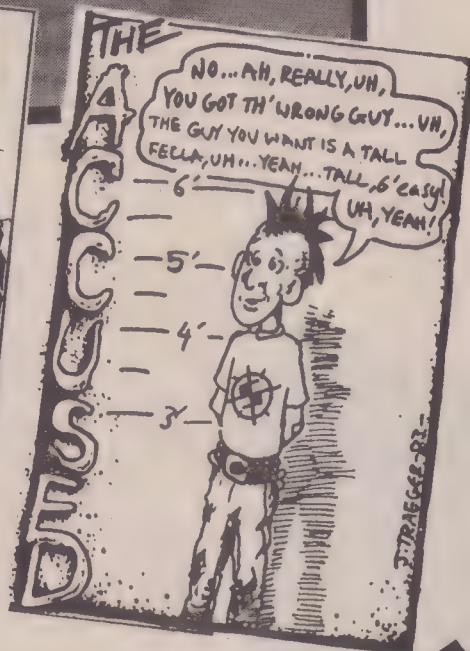 THE
ACCUSED
NO...AH, REALLY, UH,
YOU GOT TH' WRONG GUY...UH,
THE GUY YOU WANT IS A TALL
FELLA, UH...YEAH...TALL, 6' easy!
UH, YEAH!
6'
5'
4'
3'
J. TRAEGER-82-